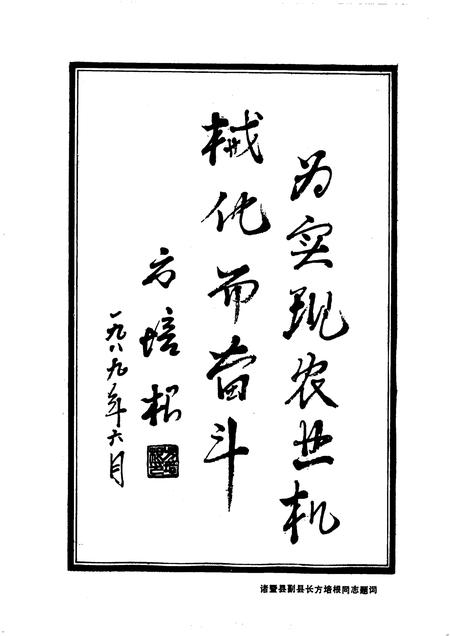 为实现农业机
械化而奋斗
方培根
一九八九年六月
诸暨县副县长方培根同志题词